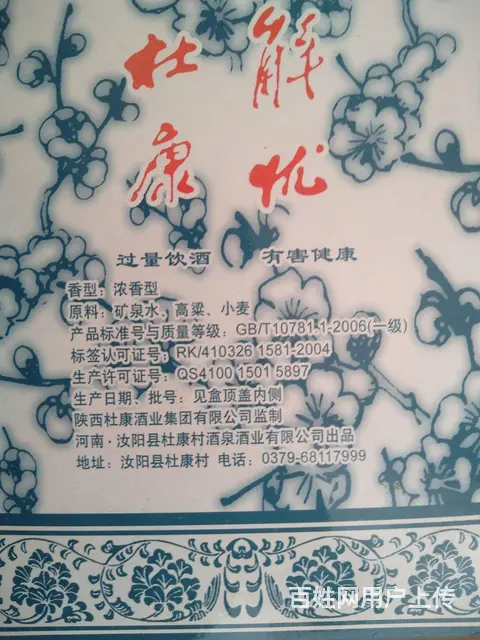 解忧
杜康
过量饮酒 有害健康
香型：浓香型
原料：矿泉水、高粱、小麦
产品标准号与质量等级：GB/T10781.1-2006(一级)
标签认可证号：RK/410326 1581-2004
生产许可证号：QS4100 1501 5897
生产日期、批号：见盒顶盖内侧
陕西杜康酒业集团有限公司监制
河南·汝阳县杜康村酒泉酒业有限公司出品
地址：汝阳县杜康村 电话：0379-68117999
百姓网用户上传